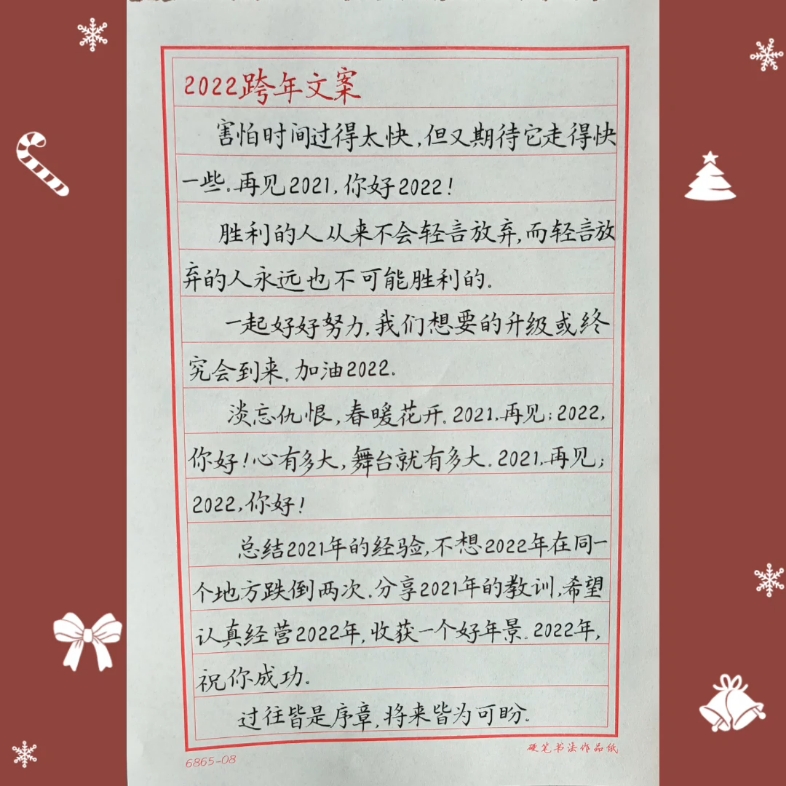 2022跨年文案
害怕时间过得太快,但又期待它走得快
一些.再见2021,你好2022!
胜利的人从来不会轻言放弃,而轻言放
弃的人永远也不可能胜利的.
一起好好努力,我们想要的升级或终
究会到来.加油2022.
淡忘仇恨,春暖花开.2021.再见;2022,
你好!心有多大,舞台就有多大.2021.再见;
2022,你好!
总结2021年的经验,不想2022年在同一
个地方跌倒两次.分享2021年的教训,希望
认真经营2022年,收获一个好年景.2022年,
祝你成功.
过往皆是序章,将来皆为可盼.
6865-08
硬笔书法作品纸